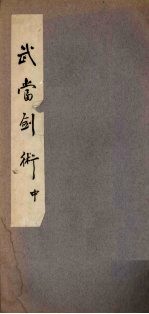 武當劍術中